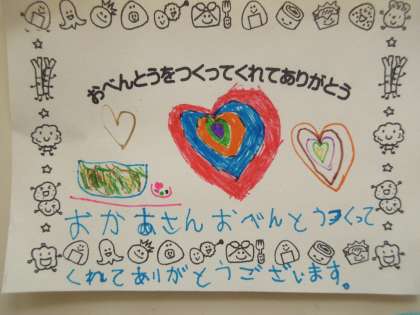 おべんとうをつくってくれてありがとう
おかあさんおべんとうつくって
くれてありがとうございます。